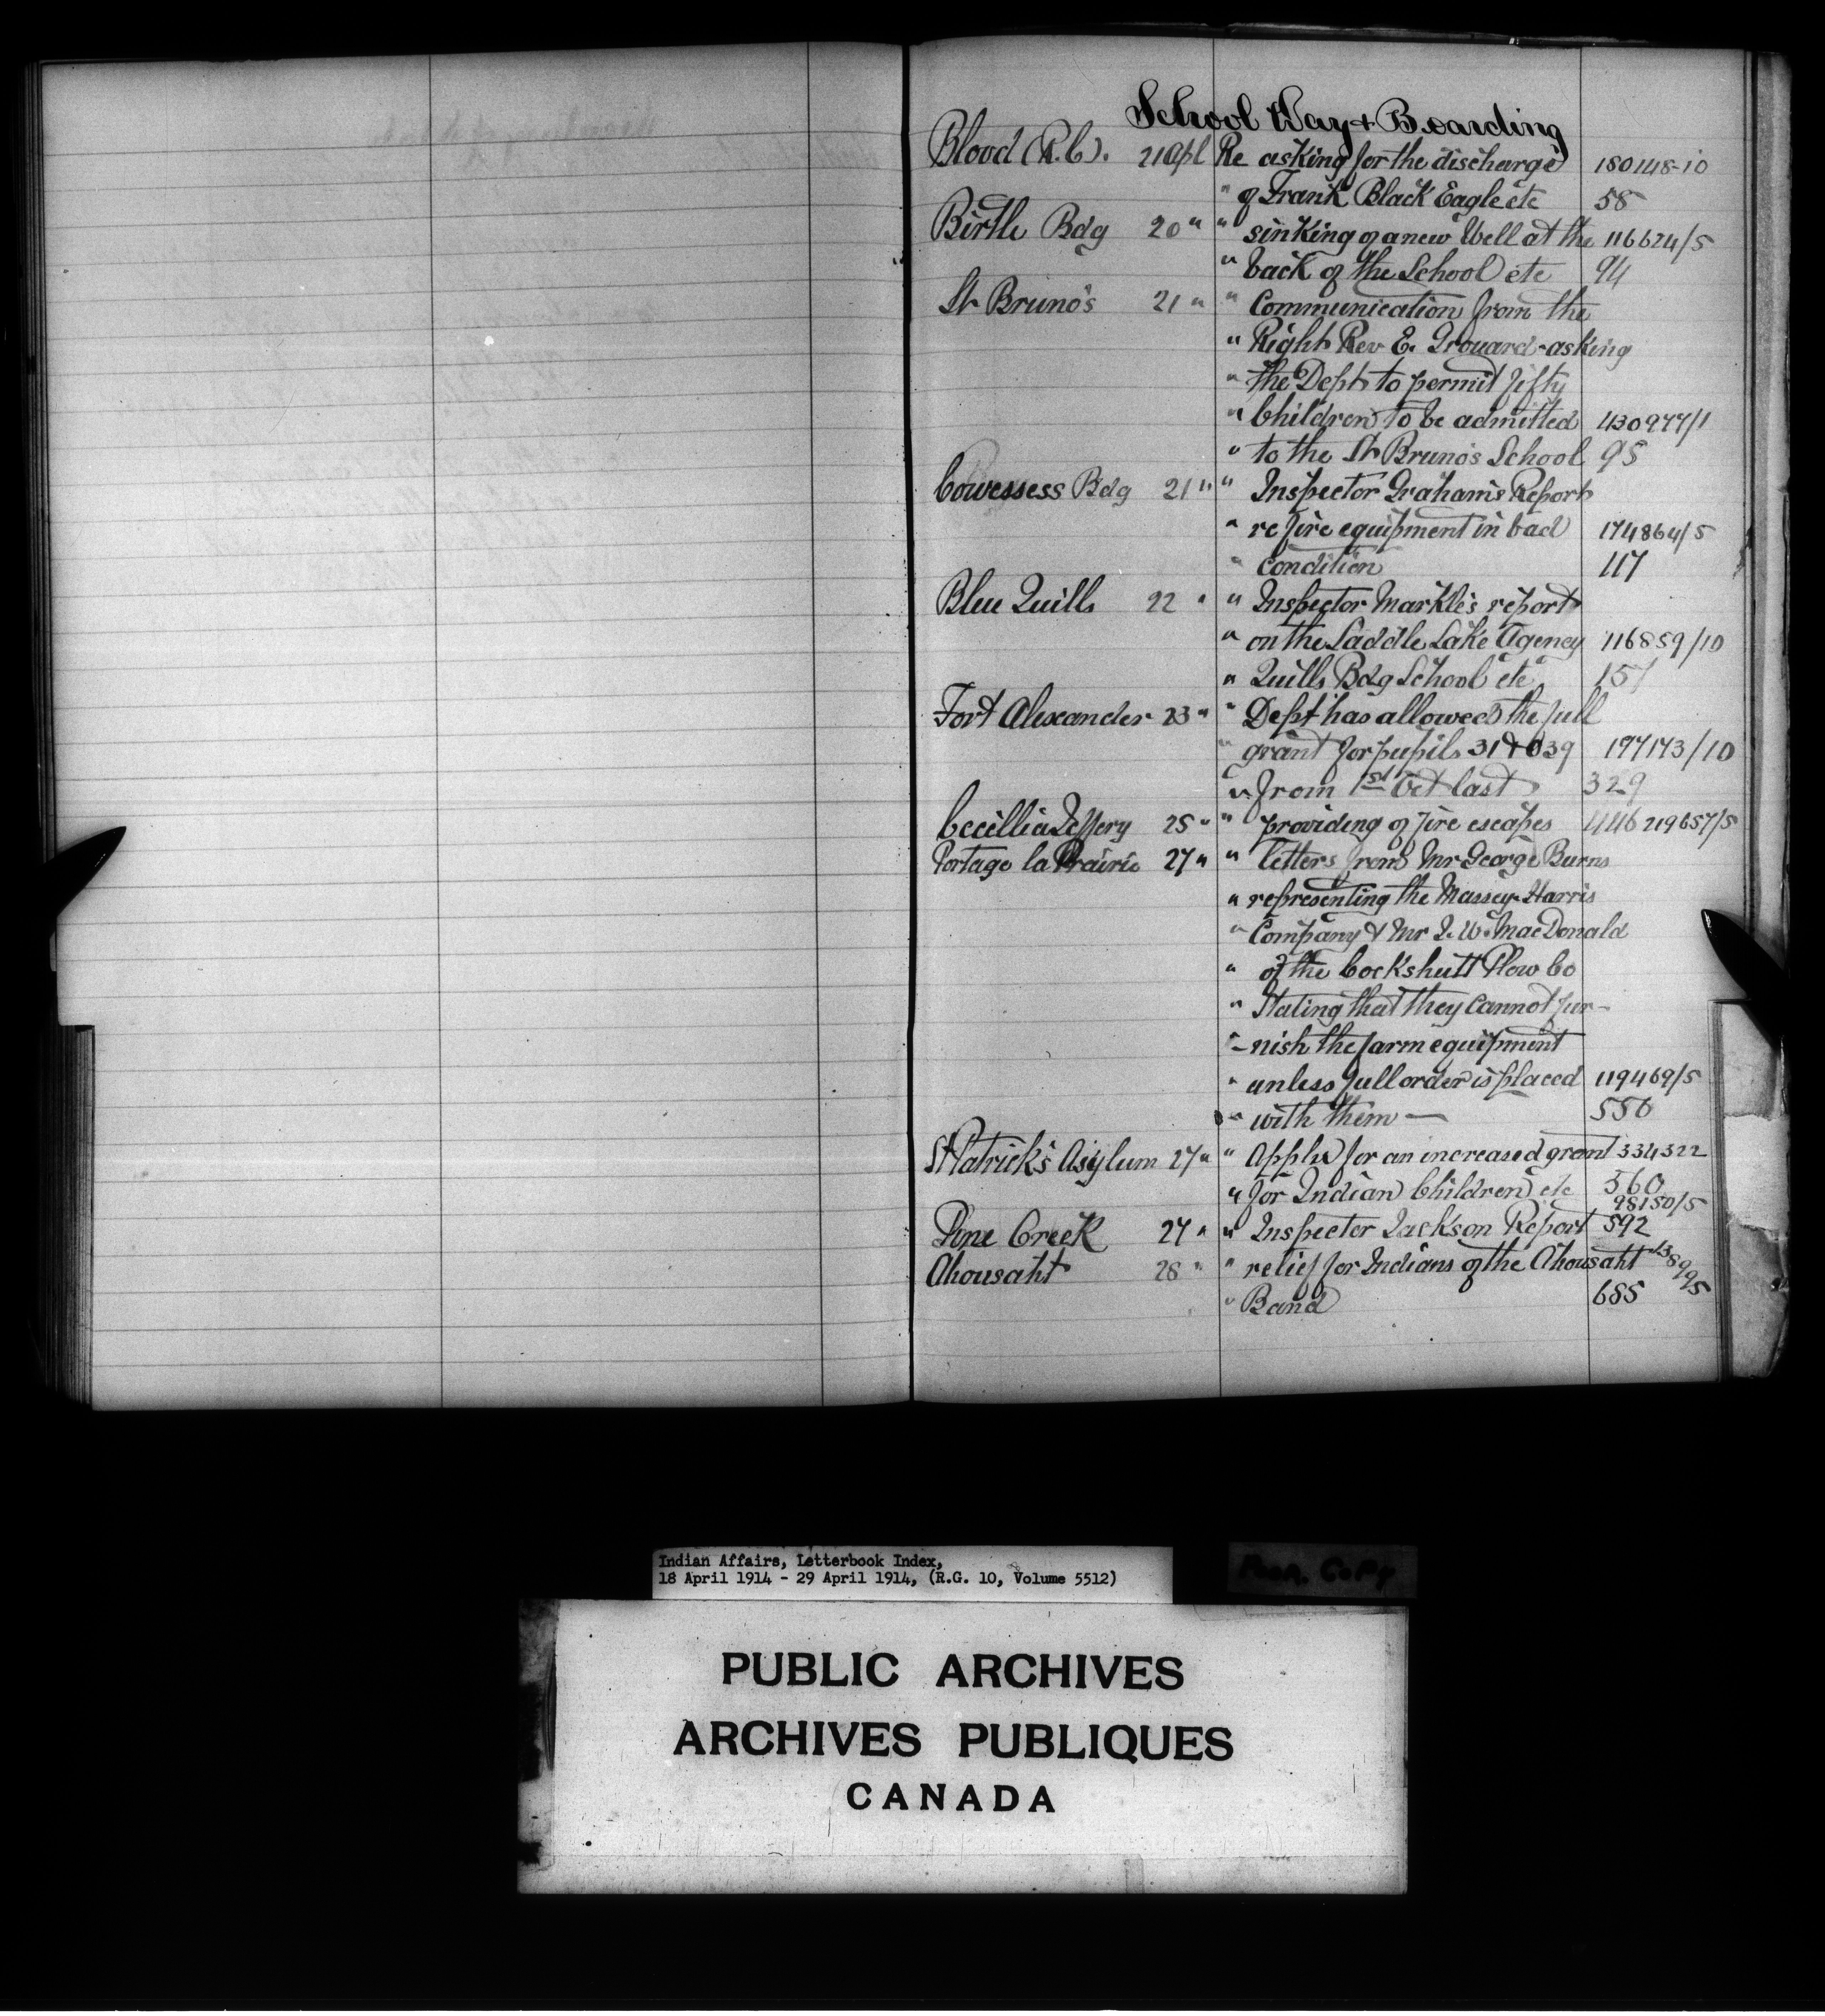 School Day + Boarding
Blood (R.C). 21 Apl Re asking for the discharge 180148-10
" of Frank Black Eagle etc 58
Birtle Bdg 20 " " sinking of a new Well at the 116624/5
" back of the School etc 94
St Bruno's 21 " " Communication from the
" Right Rev E. Grouard - asking
" the Dept to permit fifty
" Children to be admitted 430977/1
" to the St Bruno's School 95
Cowessess Bdg 21 " " Inspector Graham's Report
" re fire equipment in bad 174864/5
" condition 117
Blue Quills 22 " " Inspector Markle's report
" on the Saddle Lake Agency 116859/10
" Quills Bdg School etc 157
Fort Alexander 23 " " Dept has allowed the full
" grant for pupils 31 & 039 197173/10
" from 1st Oct last 329
Cecillia Jeffery 25 " " providing of fire escapes 446 219657/5
Portage la Prairie 27 " " letters from Mr George Burns
" representing the Massey-Harris
" Company & Mr J. W. MacDonald
" of the Cockshutt Plow Co
" Stating that they cannot fur-
"-nish the farm equipment
" unless full order is placed 119469/5
" with them — 550
St Patrick's Asylum 27 " " Appln for an increased grant 334322
" for Indian Children etc 560
98150/5
Pine Creek 27 " " Inspector Jackson Report 592
Ahousaht 28 " " relief for Indians of the Ahousaht 138995
" Band 685
Indian Affairs, Letterbook Index,
18 April 1914 - 29 April 1914, (R.G. 10, Volume 5512)
Poor Copy
PUBLIC ARCHIVES
ARCHIVES PUBLIQUES
CANADA